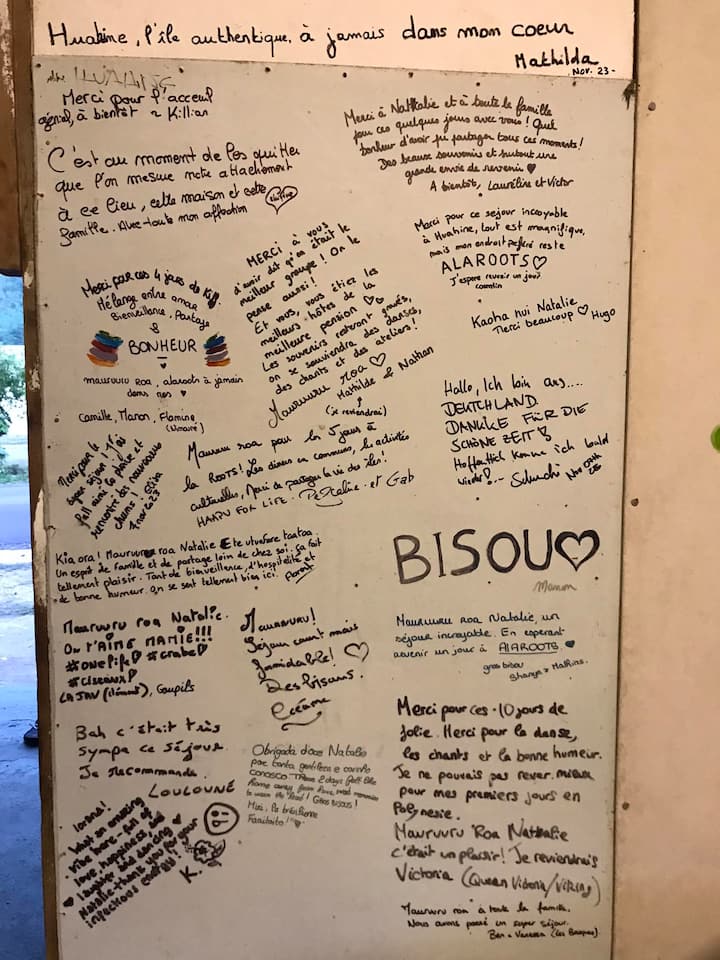 Huahine, l'île authentique, à jamais dans mon coeur
Mathilda
Nov. 23
Merci pour l'acceuil
génial, à bientôt
Killian
Merci à Nathalie et à toute la famille
pour ces quelques jours avec vous ! Quel
bonheur d'avoir pu partager tous ces moments !
Des beaux souvenirs et surtout une
grande envie de revenir ♥
A bientôt, Laureline et Victor
C'est au moment de les quitter
que l'on mesure notre attachement
à ce lieu, cette maison et cette
famille. Avec toute mon affection
Merci pour ce sejour incroyable
à Huahine, tout est magnifique,
mais mon endroit préféré reste
ALAROOTS ♡
J'espère revenir un jour?
Merci pour ces 4 jours de Kiff
Mélange entre amour
Bienveillance, Partage
&
BONHEUR
mauruuru Roa, alaroots à jamais
dans nos ♥
Camille, Manon, Flamine
MERCI à vous
d'avoir dit qu'on était le
meilleur groupe ! On le
pense aussi !
Et vous, vous étiez les
meilleurs hôtes de la
meilleure pension ♡♡
Les souvenirs resteront gravés,
on se souviendra des danses,
des chants et des ateliers !
Mauruuru roa ♡
Mathilde & Nathan
(je reviendrai)
Kaoha nui Natalie
Merci beaucoup ♡ Hugo
Hallo, Ich bin aus....
DEUTCHLAND
DANKE FÜR DIE
SCHÖNE ZEIT
Hoffentlich komme ich bald
wieder!
Merci pour le
super séjour ! J'ai
full aimé la plage et
rencontrer des nouveaux
chums !
Mauruuru roa pour les 5 jours à
la ROOTS! Les diners en communs, les activités
culturelles, Merci de partager la vie des îles!
HAAPU FOR LIFE. et Gab
Kia ora ! Mauruuru roa Natalie
Un esprit de famille et de partage loin de chez soi. Ça fait
tellement plaisir. Tant de bienveillance, d'hospitalité et
de bonne humeur. On se sent tellement bien ici.
BISOU♡
Manon
Mauruuru roa Natalie.
On t'AIME MAMIE!!!
#onepiff #crabe
#ciseaux
Goupils
Mauruuru!
Séjour court mais
formidable! ♡
Des bisous.
Océane
Mauruuru roa Natalie, un
séjour incroyable. En esperant
revenir un jour à AlAROOTS. ♥
gros bisou
Shanya & Mathias.
Bah c'était très
sympa ce séjour
Je recommande.
LOULOUNE
Obrigada doce Natalie
por tanta gentileza e carinho
conosco. These 2 days felt like
home away from home,
Merci pour ces 10 jours de
folie. Merci pour la danse,
les chants et la bonne humeur.
Je ne pouvais pas rever mieux
pour mes premiers jours en
Polynésie.
Mauruuru Roa Nathalie
c'était un plaisir! Je reviendrais
Victoria (Queen Victoria/Viking)
Iorana!
What an amazing
vibe here - full of
love, happiness, and
laughter and dancing ♥
Natalie - thank you for your
infectious energy!
K.
Mauruuru roa à toute la famille.
Nous avons passé un super séjour.
Ben & Vanessa (les Basques)